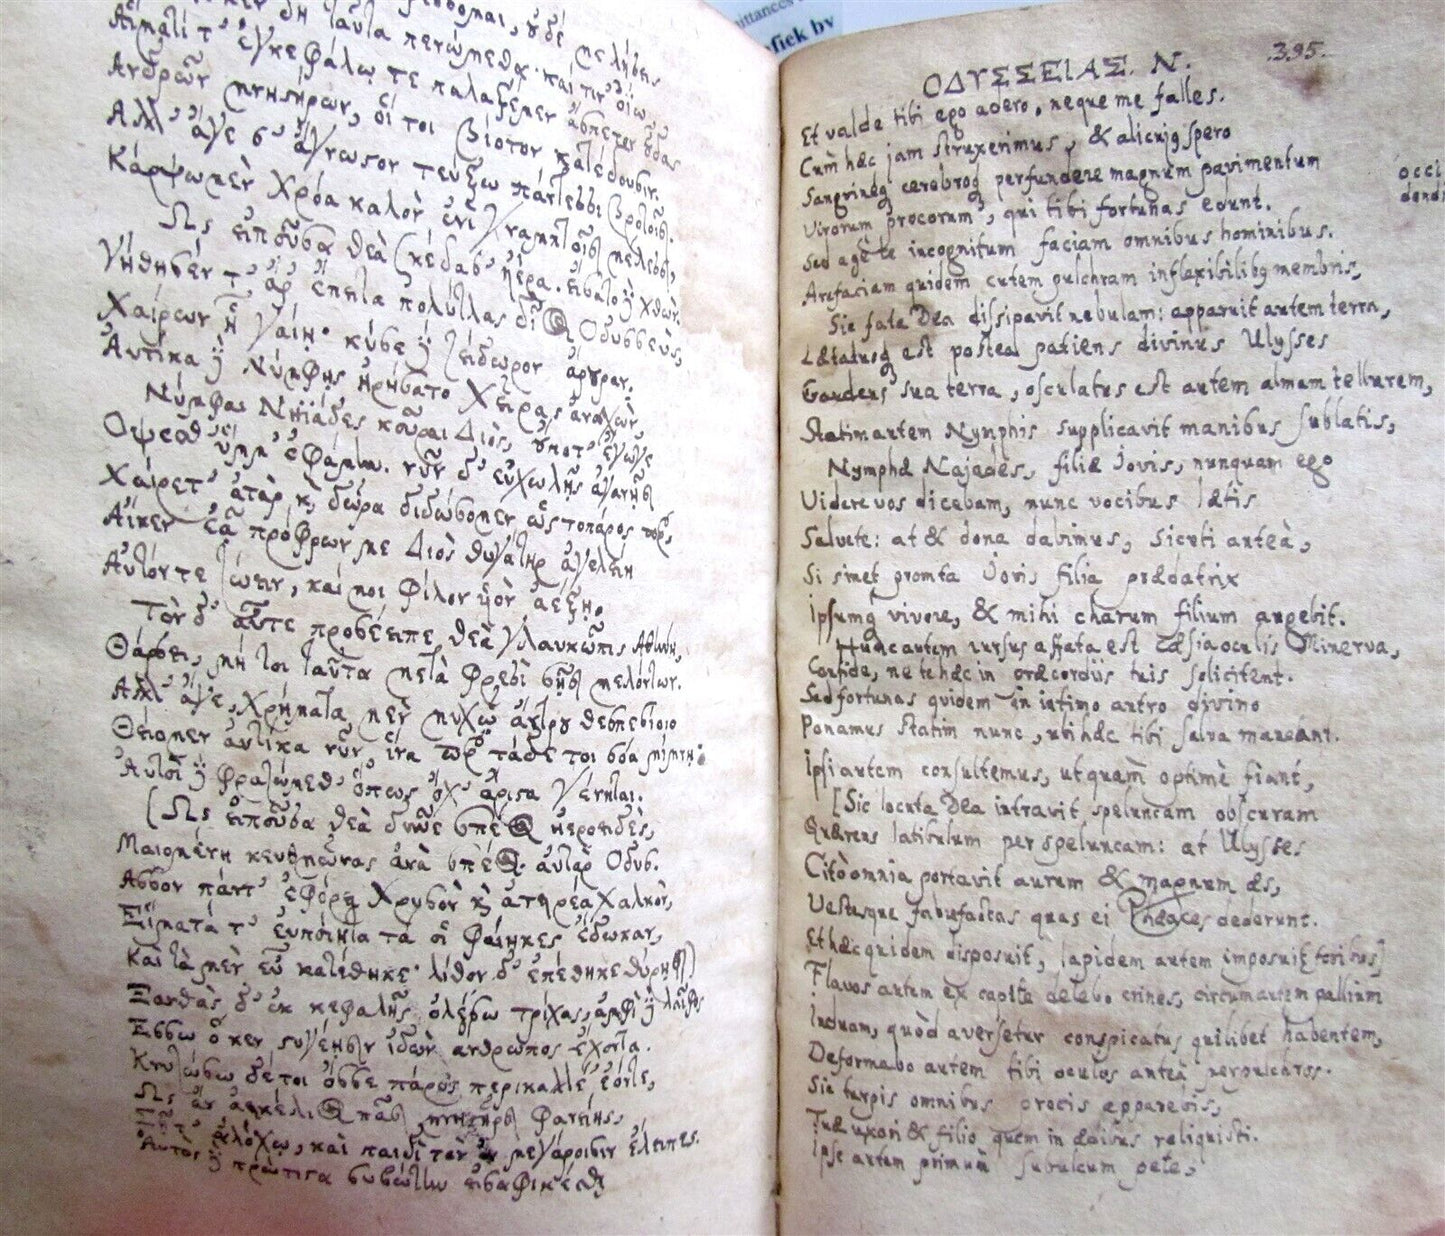 αἵματί τ' ἐγκεφάλῳ τε παλαξέμεν ἄσπετον οὖδας
Ἀνδρῶν μνηστήρων, οἵ τοι βίοτον κατέδουσιν.
Ἀλλ' ἄγε σ' ἄγνωστον τεύξω πάντεσσι βροτοῖσι.
Κάρψω μὲν χρόα καλὸν ἐνὶ γναμπτοῖσι μέλεσσι,
Ὣς εἰποῦσα θεὰ σκέδασ' ἠέρα. εἴσατο δὲ χθών.
Γήθησέν τ' ἄρ' ἔπειτα πολύτλας δῖος Ὀδυσσεὺς,
Χαίρων ᾗ γαίῃ· κύσε δὲ ζείδωρον ἄρουραν.
Αὐτίκα δὲ Νύμφῃς ἠρήσατο χεῖρας ἀνασχών,
Νύμφαι Νηϊάδες κοῦραι Διὸς, οὔποτ' ἔγωγε
Ὄψεσθ' ὔμμ' ἐφάμην. νῦν δ' εὐχωλῇς ἀγανῇσι
Χαίρετ' ἀτὰρ καὶ δῶρα διδώσομεν ὡς τοπάρος περ,
Αἴκεν ἐᾷ πρόφρων με Διὸς θυγάτηρ ἀγελείη
Αὐτόν τε ζώειν, καί μοι φίλον υἱὸν ἀέξῃ.
Τὸν δ' αὖτε προσέειπε θεὰ γλαυκῶπις Ἀθήνη,
Θάρσει, μή τοι ταῦτα μετὰ φρεσὶ σῇσι μελόντων.
Ἀλλ' ἄγε, χρήματα μὲν μυχῷ ἄντρου θεσπεσίοιο
Θείομεν αὐτίκα νῦν, ἵνα περ τάδε τοι σόα μίμνῃ·
Αὐτοὶ δὲ φραζώμεθ' ὅπως ὄχ' ἄριστα γένηται.
(Ὣς εἰποῦσα θεὰ δῦνε σπέος ἠεροειδὲς,
Μαιομένη κευθμῶνας ἀνὰ σπέος. αὐτὰρ Ὀδυσ.
Ἆσσον πάντ' ἐφόρει χρυσὸν καὶ ἀτειρέα χαλκὸν,
Εἵματά τ' εὐποίητα τά οἱ Φαίηκες ἔδωκαν,
Καὶ τὰ μὲν εὖ κατέθηκε· λίθον δ' ἐπέθηκε θύρῃσι)
Ξανθὰς δ' ἐκ κεφαλῆς ὀλέσω τρίχας, ἀμφὶ δὲ λαῖφος
Ἕσσω ὅ κεν στυγέῃσιν ἰδὼν ἄνθρωπος ἔχοντα.
Κνυζώσω δέ τοι ὄσσε πάρος περικαλλέ' ἐόντε,
Ὡς ἂν ἀεικέλιος πᾶσι μνηστῆρσι φανείης,
Σῇ τ' ἀλόχῳ, καὶ παιδὶ τὸν ἐν μεγάροισιν ἔλειπες.
Αὐτὸς δὲ πρώτιστα συβώτην εἰσαφικέσθαι
ΟΔΥΣΣΕΙΑΣ. Ν. .395.
Et valde tibi ego adero, neque me falles.
Cùm hæc jam struxerimus, & aliquẽ spero
Sanguinéq cerebroq perfundere magnum pavimentum
Virorum procorum, qui tibi fortunas edunt.
Sed agè te incognitum faciam omnibus hominibus.
Arefaciam quidem cutem pulchram inflexibilibq membris,
Sic fata Dea dissipavit nebulam: apparuit autem terra,
Lætatusq est postea patiens divinus Ulysses
Gaudens sua terra, osculatus est autem almam tellurem,
Statim autem Nymphis supplicavit manibus sublatis,
Nymphæ Najades, filiæ Jovis, nunquam ego
Videre vos dicebam, nunc vocibus lætis
Salvete: at & dona dabimus, sicuti anteà,
Si sinet promta Jovis filia prædatrix
Ipsumq vivere, & mihi charum filium augebit.
Hunc autem rursus affata est cæsia oculis Minerva,
Confide, ne te hæc in præcordiis tuis solicitent.
Sed fortunas quidem in intimo antro divino
Ponamus statim nunc, ubi hæc tibi salva maneant.
Ipsi autem consultemus, ut quàm optimè fiant,
[Sic locuta Dea intravit speluncam obscuram
Quærens latibulum per speluncam: at Ulysses
Citò omnia portavit aurum & magnum æs,
Vestesque fabrefactas quas ei Phæaces dederunt.
Et hæc quidem disposuit, lapidem autem imposuit [foribus]
Flavos autem ex capite delebo crines, circum autem pallium
Induam, quòd aversetur conspicatus quilibet habentem,
Deformabo autem tibi oculos anteà perpulchros.
Sic turpis omnibus procis apparebis,
Tuæ uxori & filio quem in ædibus reliquisti.
Ipse autem primùm subulcum pete,